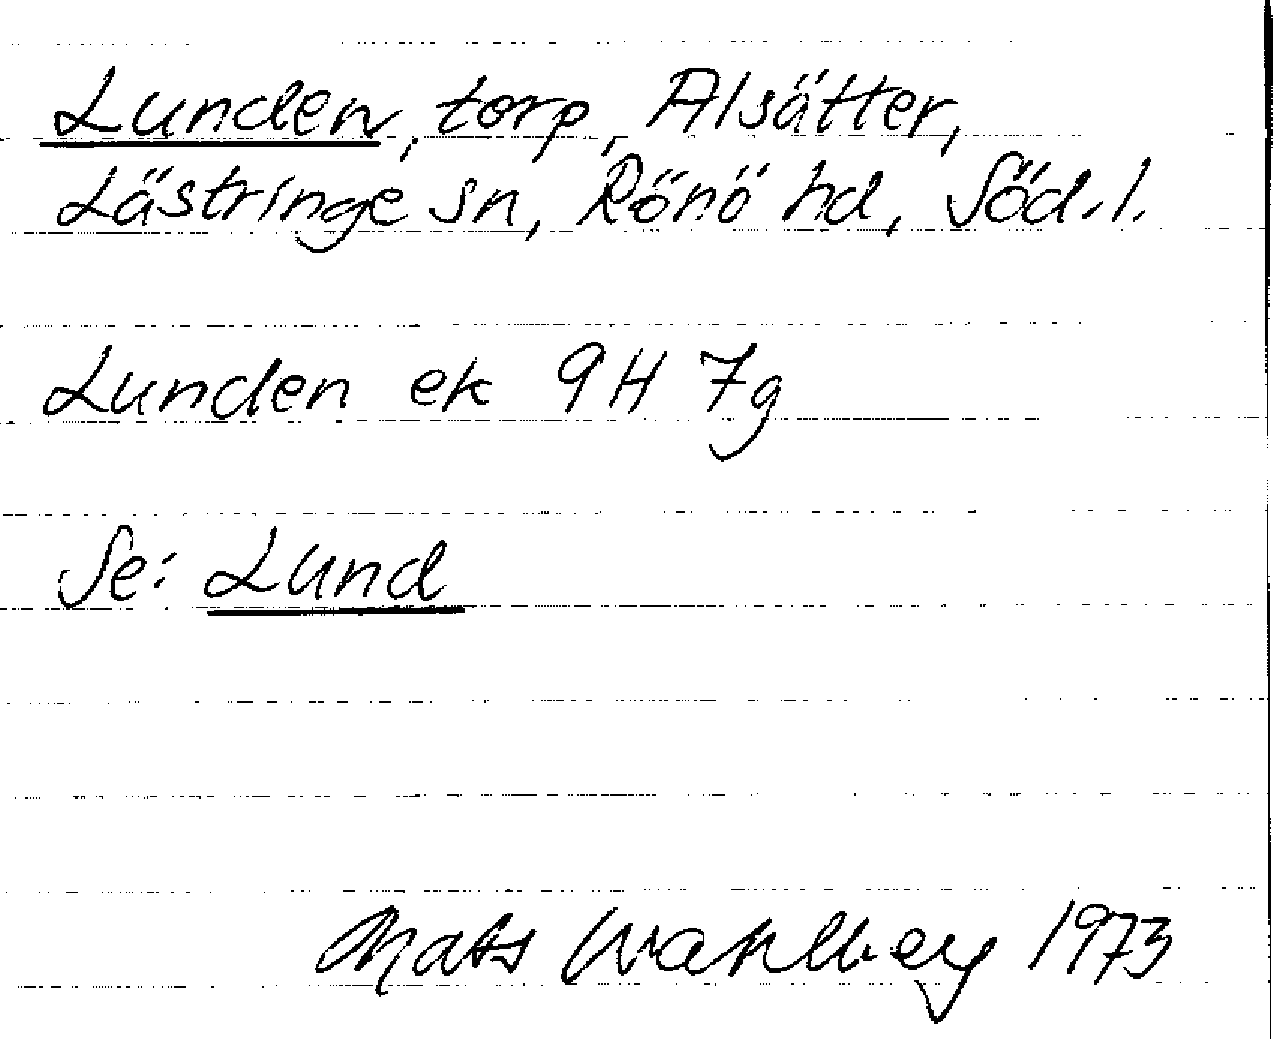 Lunden, torp, Alsätter,
Lästringe sn, Rönö hd, Söd.l.
Lunden ek 9H 7g
Se: Lund
Mats Wahlberg 1973